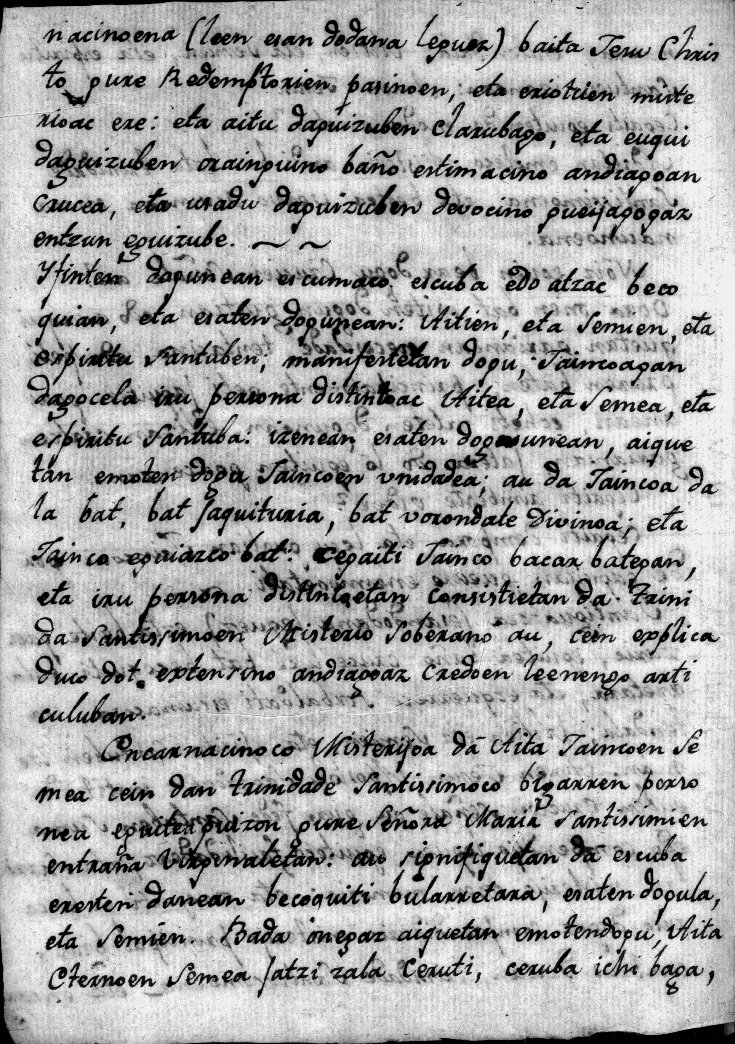 nacinoena (leen esan dodana leguez) baita Jesu Chris
to gure Redemptorien pasinoen, eta eriotzien miste
rioac ere: eta aitu daguizuben clarubago, eta euqui
daguizuben orainguino baño estimacino andiagoan
Crucea, eta usadu daguizuben devocino gueijagogaz
entzun eguizube. ~ ~
Ifinten dogunean escumaco escuba edo atzac beco
quian, eta esaten dogunean: Aitien, eta Semien, eta
espiritu Santuben; manifestetan dogu, Jaincoagan
dagocela iru persona distintoac Aitea, eta Semea, eta
espiritu Santuba: izenean esaten dogunean, aique
tan emoten dogu Jaincoen vnidadea; au da Jaincoa da
la bat, bat Jaquituria, bat vorondate Divinoa; eta
Jainco eguiazco bat: cegaiti Jainco bacar bategan,
eta iru persona distintoetan Consistietan da Trini
da Santissimoen Misterio Soberano au, cein explica
duco dot extensino andiagoaz Credoen leenengo arti
culuban.
Encarnacinoco Misterijoa da Aita Jaincoen Se
mea cein dan trinidade Santissimoco bigarren perso
nea eguitea guizon gure Señora Maria Santissimien
entraña virginaletan: au signifiquetan da escuba
eresten danean becoquiti bularretara, esaten dogula,
eta Semien. Bada onegaz aiquetan emotendogu, Aita
Eternoen Semea Jatzi zala Ceruti, ceruba ichi baga,